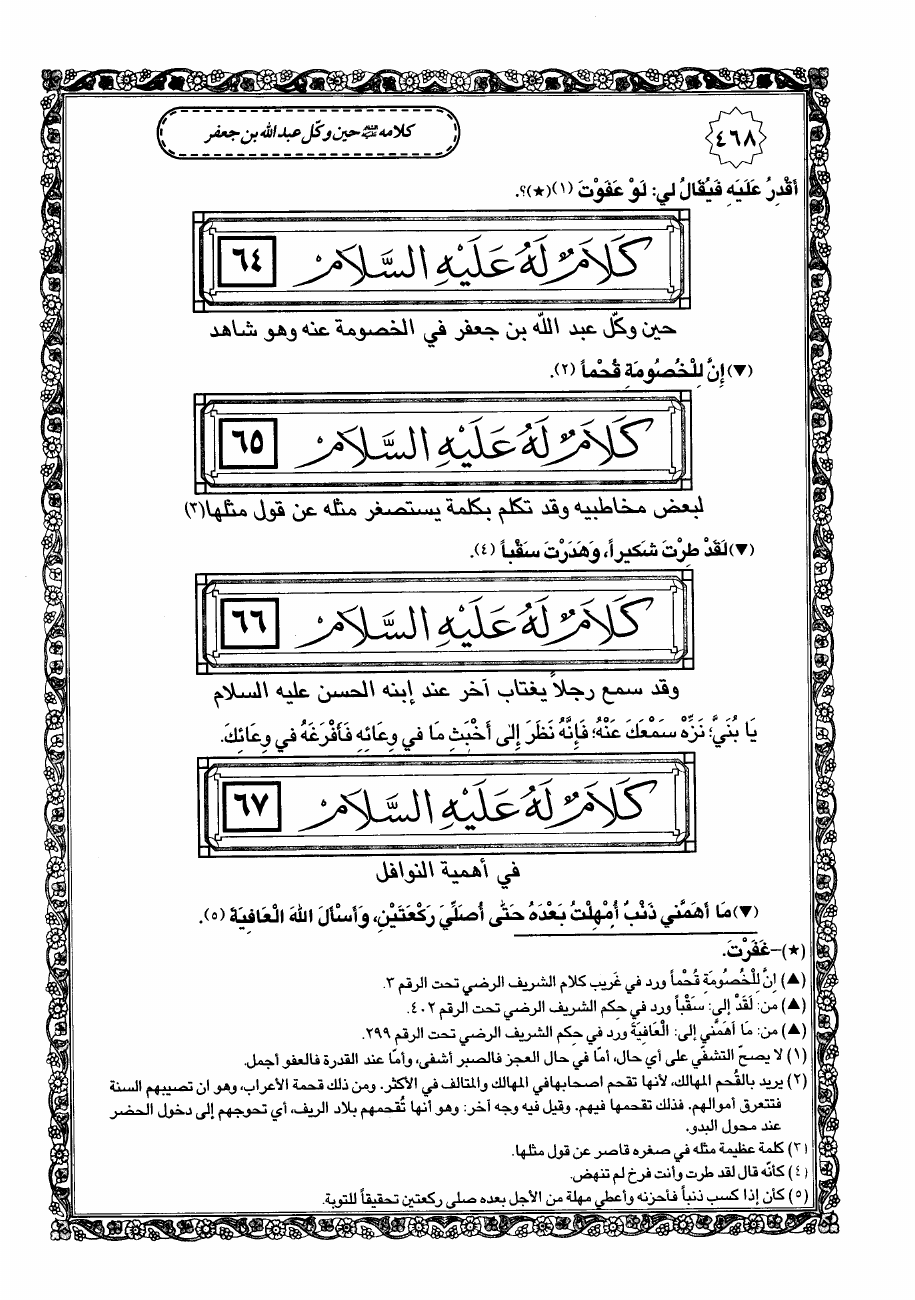 ٤٦٨
كلامه عليه السلام حين وكّل عبد الله بن جعفر
أَقْدِرُ عَلَيْهِ فَيُقَالُ لي: لَوْ عَفَوْتَ (١)(★)؟.
كَلَامٌ لَهُ عَلَيْهِ السَّلَامْ ٦٤
حين وكّل عبد الله بن جعفر في الخصومة عنه وهو شاهد
(▼)إِنَّ لِلْخُصُومَةِ قُحْماً (٢).
كَلَامٌ لَهُ عَلَيْهِ السَّلَامْ ٦٥
لبعض مخاطبيه وقد تكلم بكلمة يستصغر مثله عن قول مثلها(٣)
(▼)لَقَدْ طِرْتَ شَكيراً، وَهَدَرْتَ سَقْباً (٤).
كَلَامٌ لَهُ عَلَيْهِ السَّلَامْ ٦٦
وقد سمع رجلاً يغتاب آخر عند إبنه الحسن عليه السلام
يَا بُنَيَّ؛ نَزِّهْ سَمْعَكَ عَنْهُ؛ فَإِنَّهُ نَظَرَ إِلى أَخْبَثِ مَا في وِعَائِهِ فَأَفْرَغَهُ في وِعَائِكَ.
كَلَامٌ لَهُ عَلَيْهِ السَّلَامْ ٦٧
في أهمية النوافل
(▼)مَا أَهَمَّني ذَنْبٌ أُمْهِلْتُ بَعْدَهُ حَتّى أُصَلِّيَ رَكْعَتَيْنِ، وَأَسْأَلَ اللهَ الْعَافِيَةَ (٥).
(★)–غَفَرْتَ.
(▲) إِنَّ لِلْخُصُومَةِ قُحْماً ورد في غريب كلام الشريف الرضي تحت الرقم ٣.
(▲) من: لَقَدْ إلى: سَقْباً ورد في حِكم الشريف الرضي تحت الرقم ٤٠٢.
(▲) من: مَا أَهَمَّني إلى: الْعَافِيَةَ ورد في حكم الشريف الرضي تحت الرقم ٢٩٩.
(١) لا يصحّ التشفّي على أي حال، أمّا في حال العجز فالصبر أشفى، وأمّا عند القدرة فالعفو أجمل.
(٢) يريد بالقُحم المهالك، لأنها تقحم اصحابهافي المهالك والمتالف في الأكثر. ومن ذلك قحمة الأعراب، وهو ان تصيبهم السنة
فتتعرق أموالهم. فذلك تقحمها فيهم. وقيل فيه وجه آخر: وهو أنها تُقحمهم بلاد الريف، أي تحوجهم إلى دخول الحضر
عند محول البدو.
(٣) كلمة عظيمة مثله في صغره قاصر عن قول مثلها.
(٤) كأنّه قال لقد طرت وأنت فرخ لم تنهض.
(٥) كأن إذا كسب ذنباً فأحزنه وأعطي مهلة من الأجل بعده صلى ركعتين تحقيقاً للتوبة.